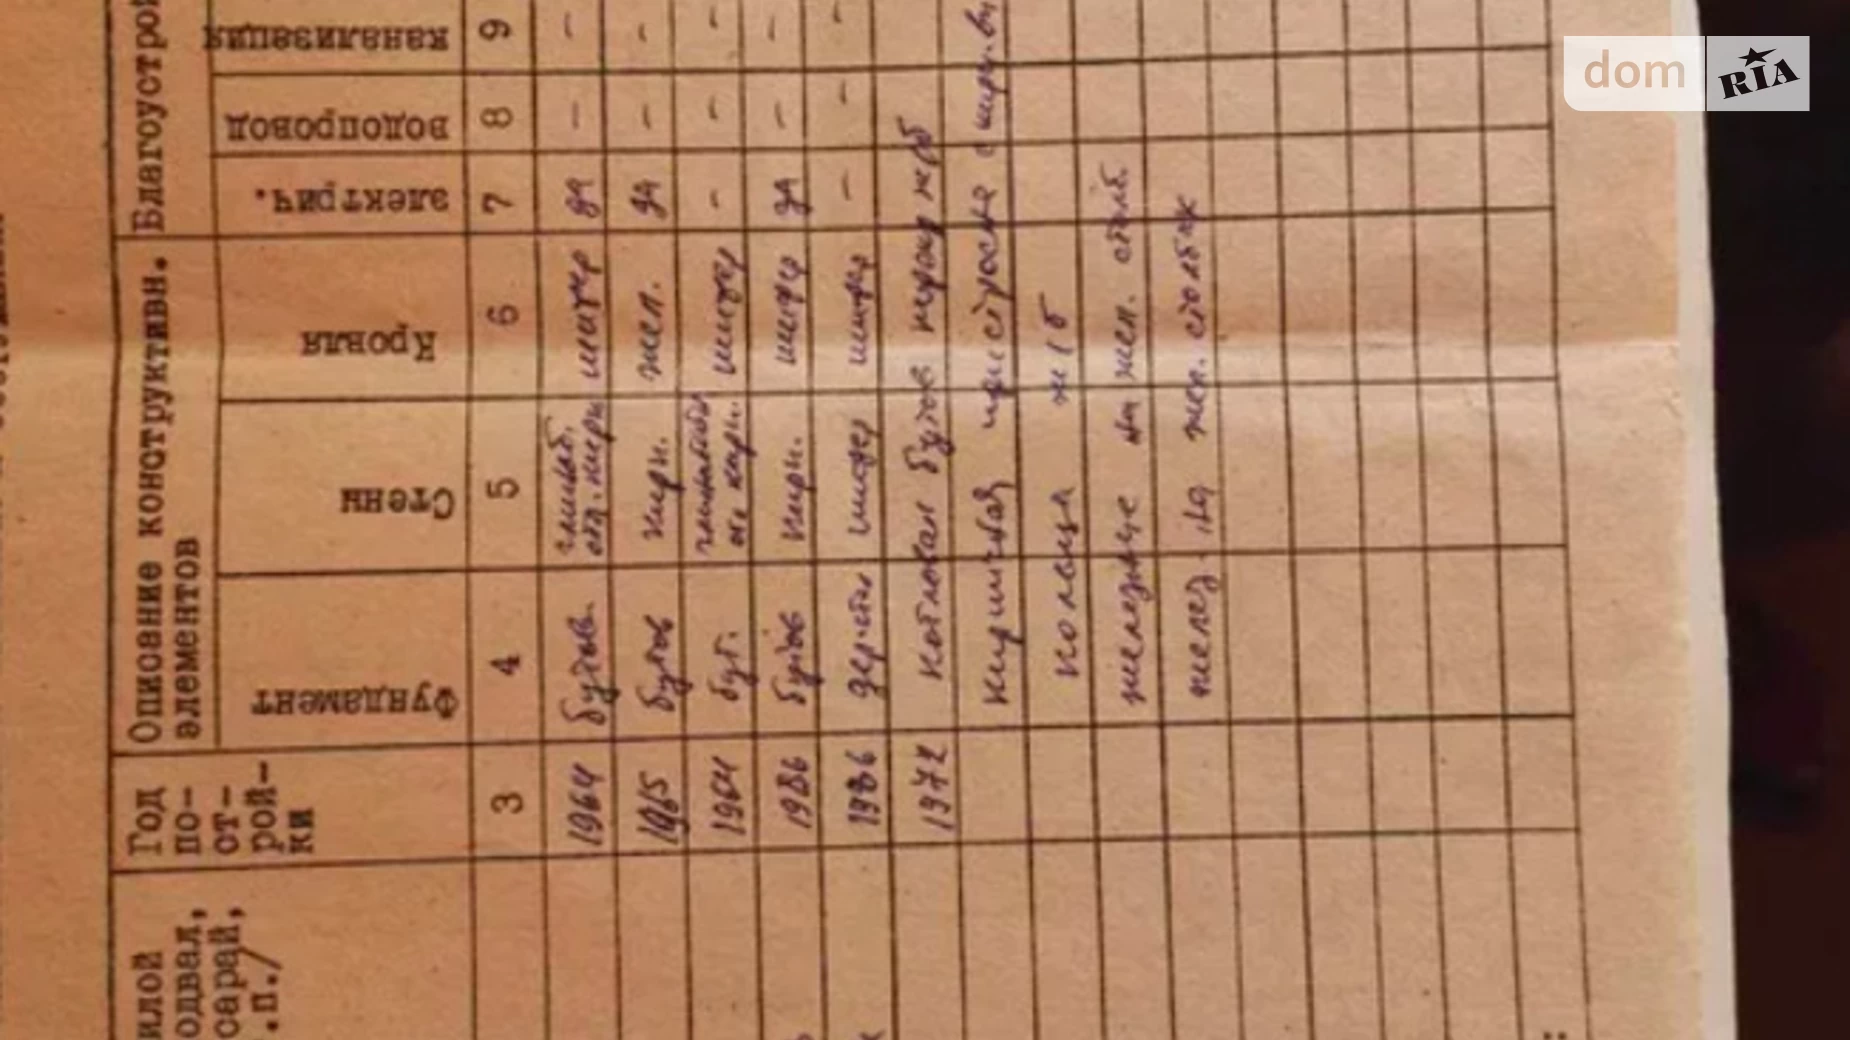 илой
одвал,
сарай,
.п./
Год
по-
ст-
рой-
ки
Описовние конструктивн.
элементов
Благоустрой
Фундамент
Стены
Кровля
электрич.
водопровод
канализация
3 4 5 6 7 8 9
1964 бутов. глиноб. обл. кирп шифер да - -
1965 бутов кирп. жел. да - -
1964 бут. кирп. шифер - - -
1986 бутов кирп. шифер да - -
1986 дер.стол шифер шифер - - -
1972 котлован бутов
кирпичная
кольца ж/б
железные на жел. столб.
желез. на жел. столбах
dom RIA